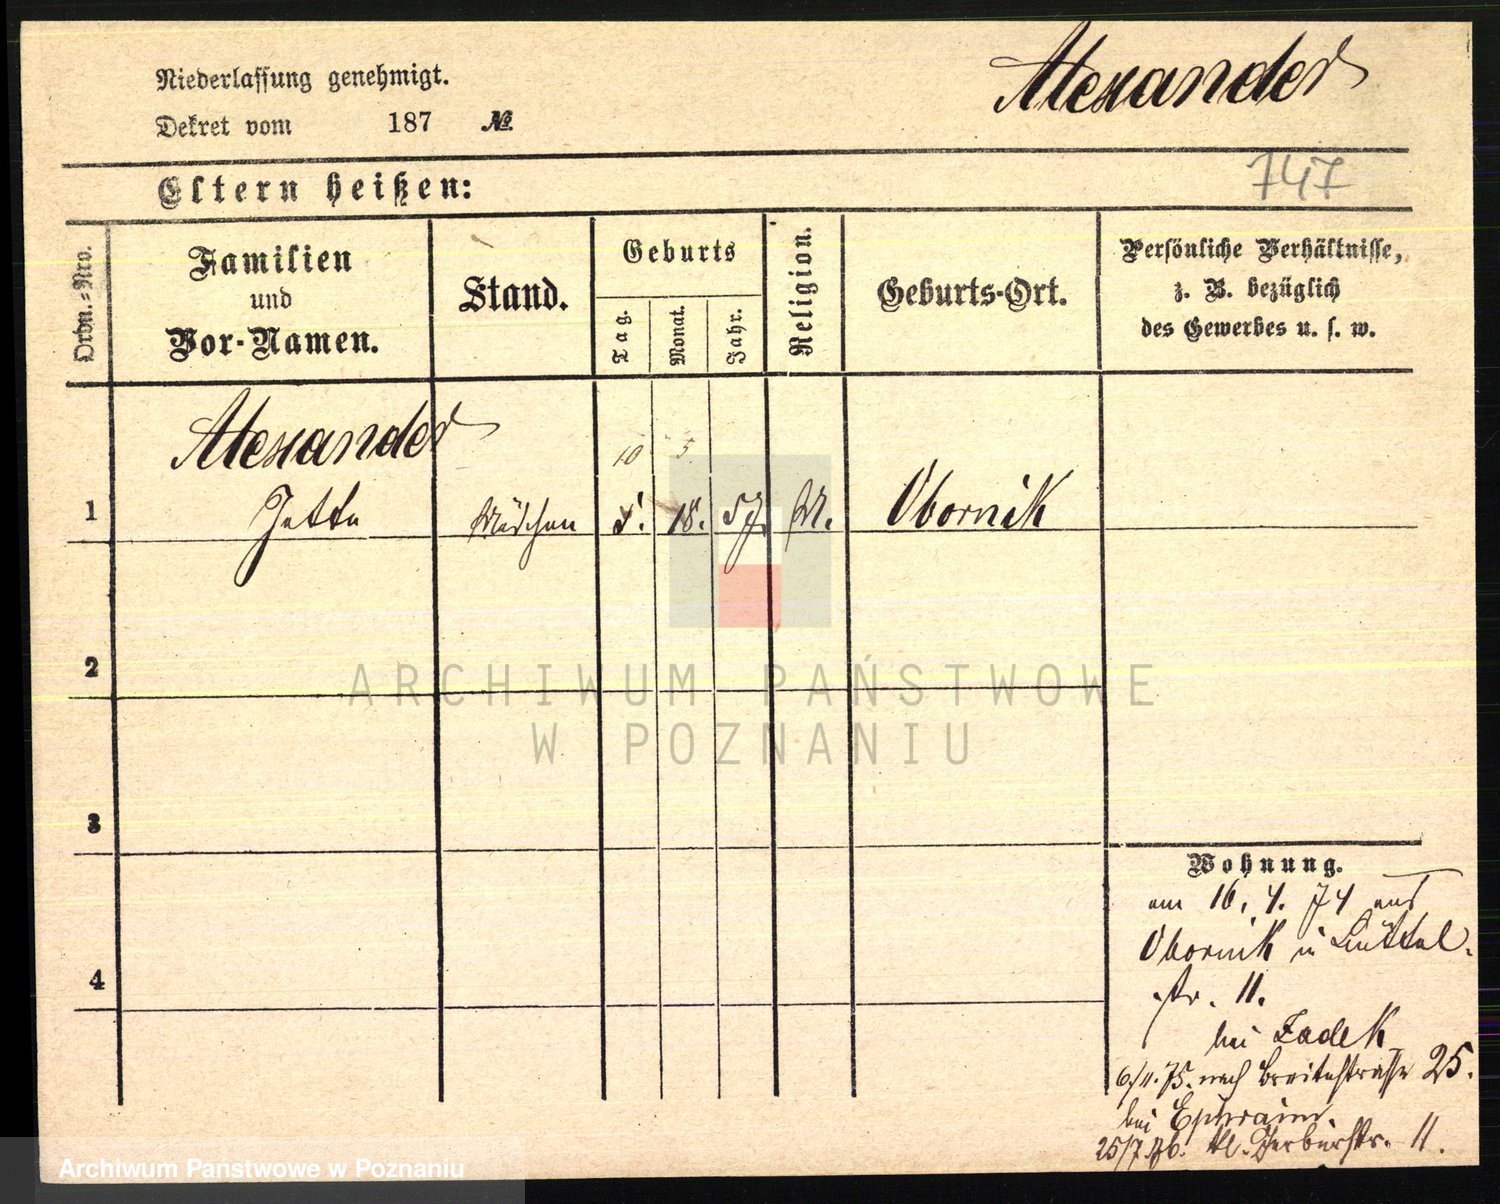 Alexander
Niederlassung genehmigt.
Dekret vom 187 №
747
Eltern heißen:
Ordn.=Nro.
Familien
und
Vor-Namen.
Stand.
Geburts
Tag.
Monat.
Jahr.
Religion.
Geburts-Ort.
Persönliche Verhältnisse,
z. B. bezüglich
des Gewerbes u. s. w.
Alexander
10 5
1 Jette Mädchen 18. 57. M. Obornik
2
3
4
Wohnung.
am 16. 4. 74 aus
Obornik in Büttel-
str. 11.
bei Zadek
6/11. 75. nach Breitestrasse 25.
bei Ephraim.
25/7. 76. kl. Gerberstr. 11.
ARCHIWUM PAŃSTWOWE
W POZNANIU
Archiwum Państwowe w Poznaniu